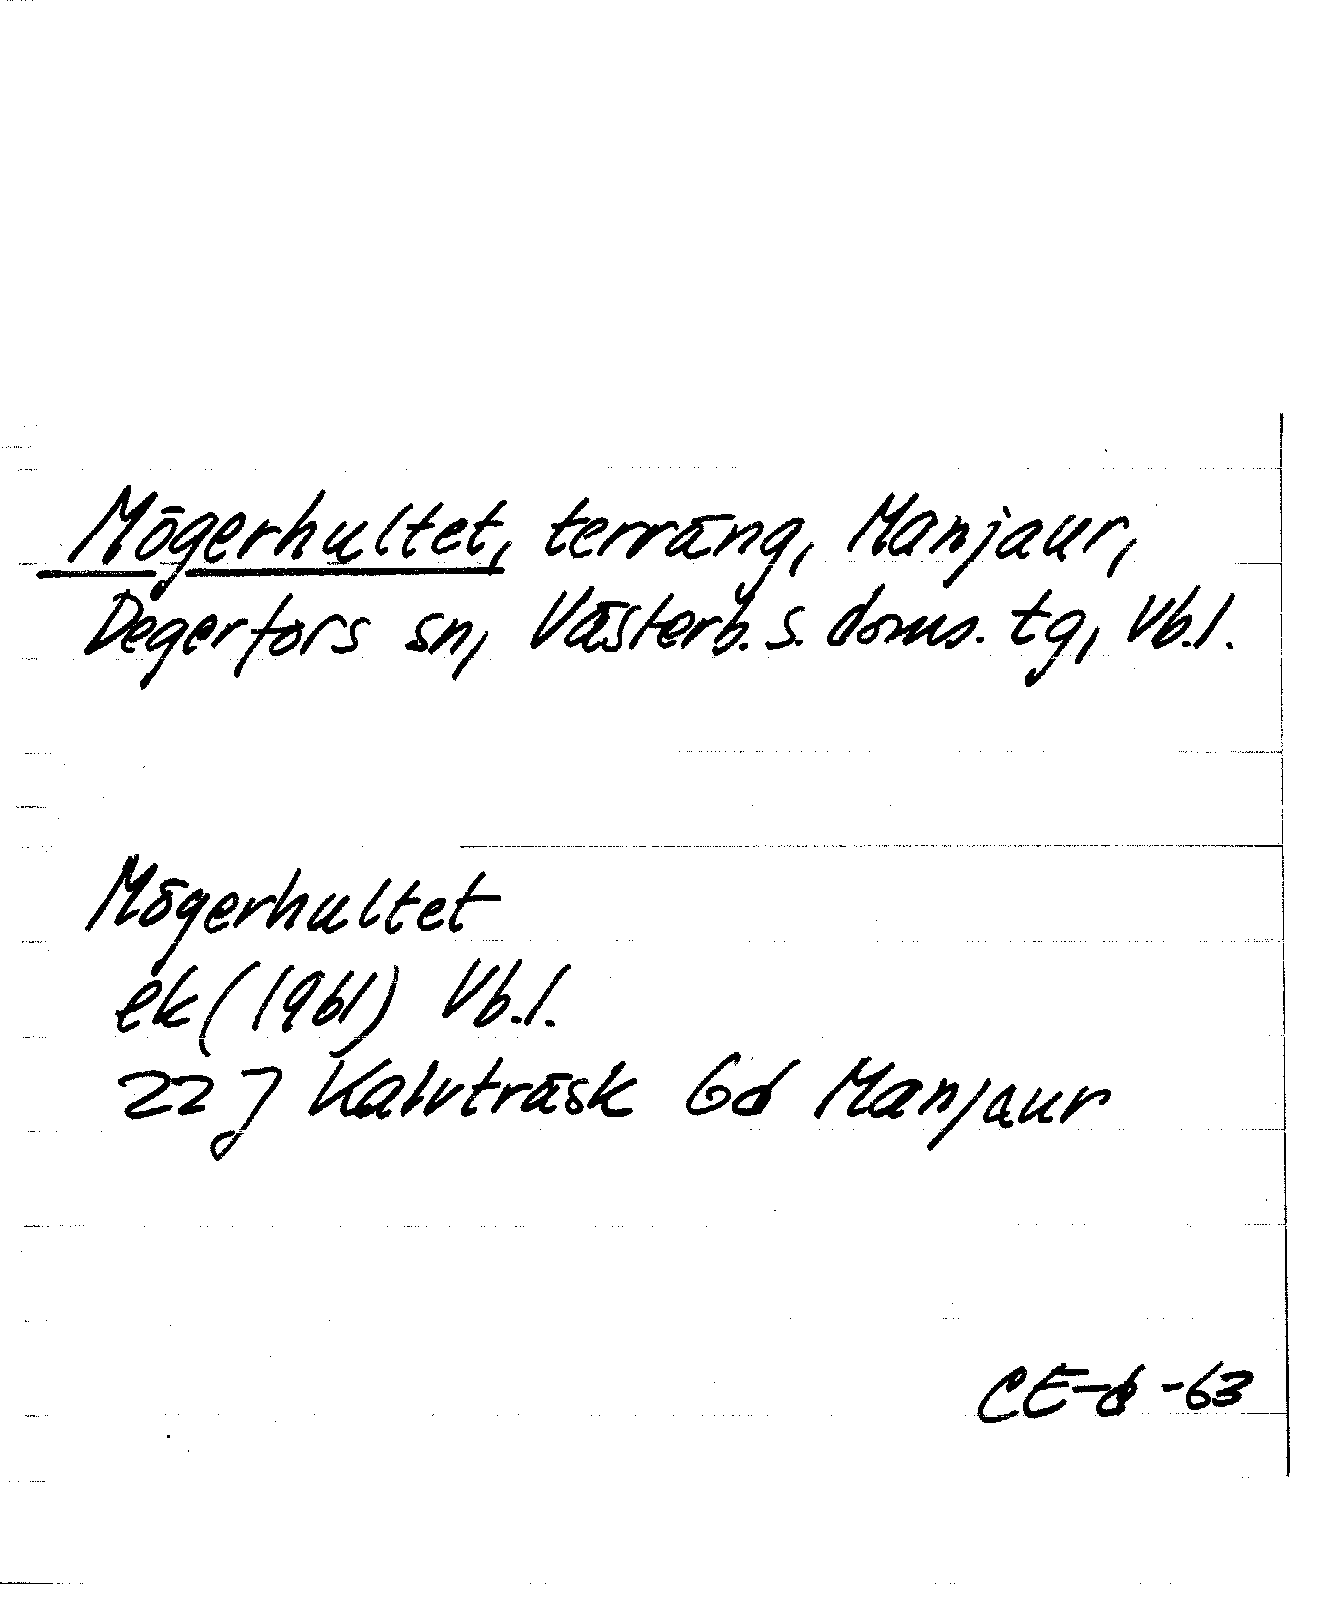 Mögerhultet, terräng, Manjaur,
Degerfors sn, Västerb. s. doms. tg, Vb.l.
Mögerhultet
ek (1961) Vb.l.
22 J Kalvträsk 6d Manjaur
CE-d -63